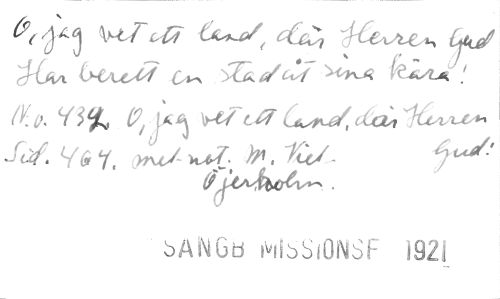 O, jag vet ett land, där Herren Gud
Har berett en stad åt sina kära!
No. 439. O, jag vet ett land, där Herren Gud!
Sid. 464. met. not. M. Viet.
Öjerholm.
SANGB MISSIONSF 1921